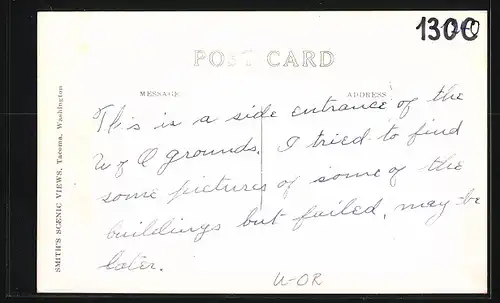 1300
POST CARD
MESSAGE
ADDRESS
This is a side entrance of the
U of O grounds. I tried to find
some pictures of some of the
buildings but failed, may-be
later.
U-OR
SMITH'S SCENIC VIEWS, Tacoma, Washington